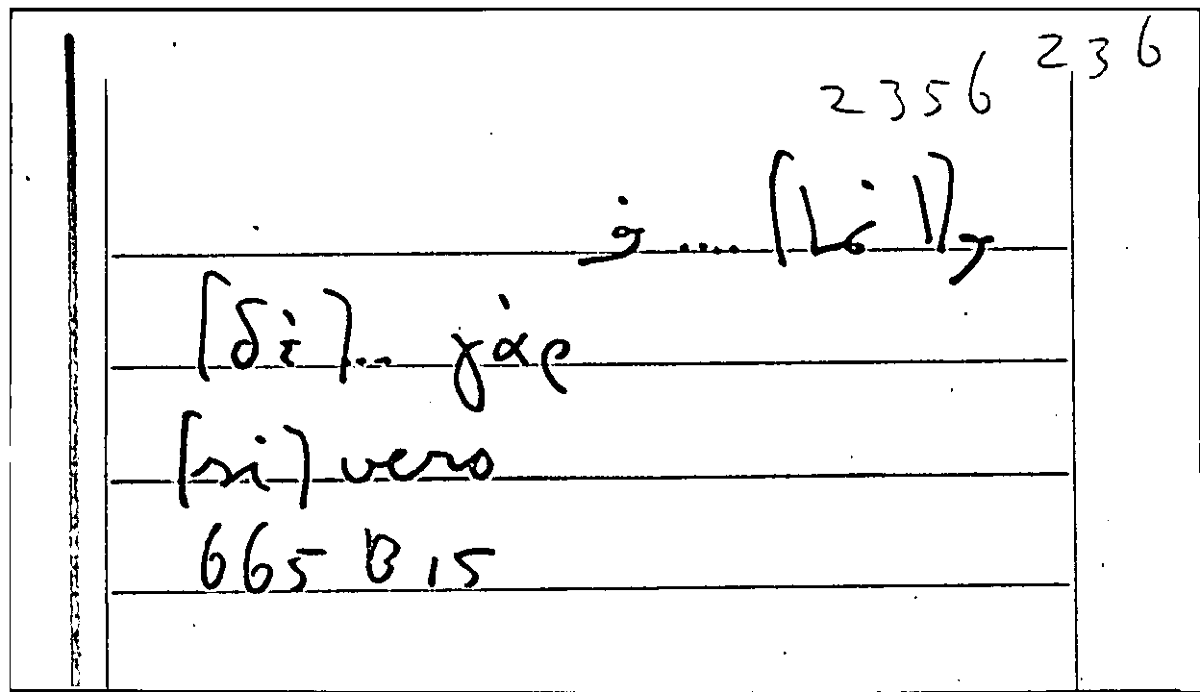 236
2356
[δὲ]... γάρ
[si] vero
665 B 15